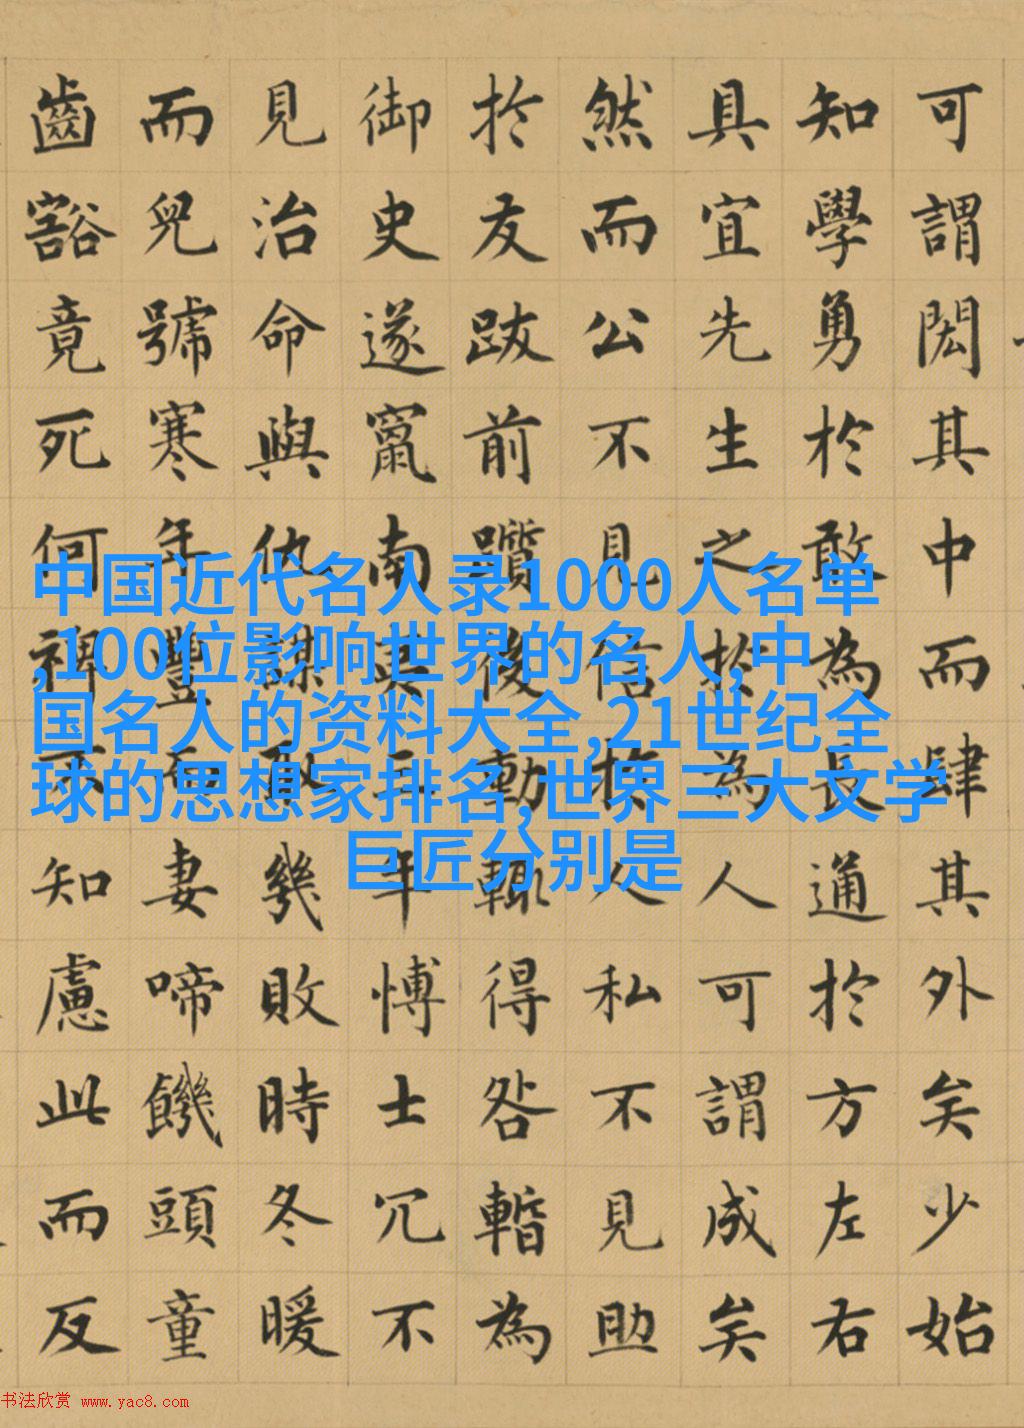 可謂閎其中而肆其外矣少始
知學勇於敢為長通於方左右
具宜先生之於為人可謂成矣
然而公不見信於人私不見助
於友跋前躓後動輒得咎暫為
御史遂竄南夷三年博士冗不
見治命與仇謀取幾敗時冬暖
而兒號寒年豐而妻啼饑頭童
齒豁竟死何裨不知慮此而反
中国近代名人录1000人名单
,100位影响世界的名人,中
国名人的资料大全,21世纪全
球的思想家排名,世界三大文学
巨匠分别是
书法欣赏 www.yac8.com